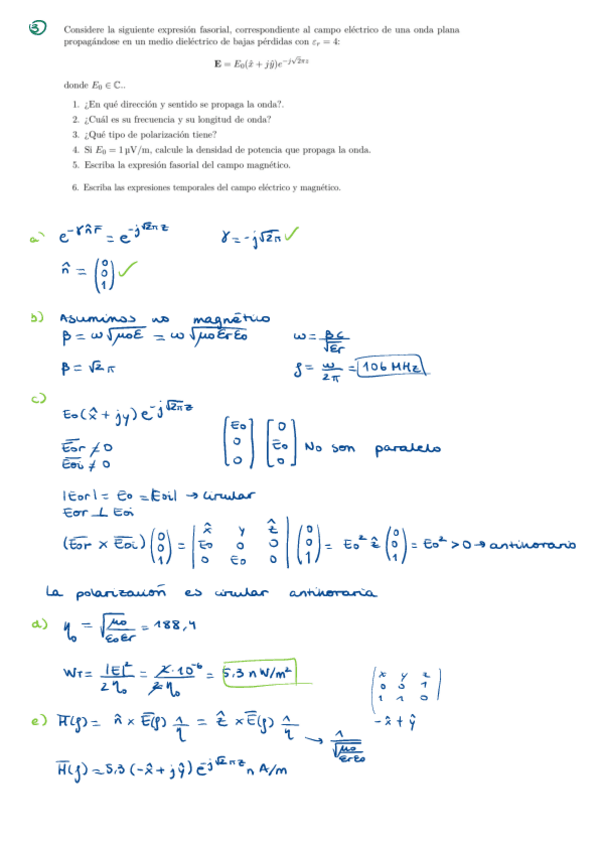 ③
Considere la siguiente expresión fasorial, correspondiente al campo eléctrico de una onda plana
propagándose en un medio dieléctrico de bajas pérdidas con εr = 4:
E = E₀(x̂ + jŷ)e^{-j√2πz}
donde E₀ ∈ ℂ..
1. ¿En qué dirección y sentido se propaga la onda?.
2. ¿Cuál es su frecuencia y su longitud de onda?
3. ¿Qué tipo de polarización tiene?
4. Si E₀ = 1 µV/m, calcule la densidad de potencia que propaga la onda.
5. Escriba la expresión fasorial del campo magnético.
6. Escriba las expresiones temporales del campo eléctrico y magnético.
a) e^{-γn̂r̄} = e^{-j√2πz} γ = -j√2π ✓
n̂ = (0 0 1) ✓
b) Asumimos no magnético
β = ω√μ₀ε = ω√μ₀εrε₀ ω = βc/√εr
β = √2π f = ω/2π = 106 MHz
c) E₀(x̂ + jy) e^{-j√2πz}
[E₀ 0 0] [0 E₀ 0] No son paralelo
E̅or ≠ 0
E̅oi ≠ 0
|Eor| = E₀ = |Eoi| → circular
Eor ⊥ Eoi
(E̅or × E̅oi) (0 0 1) = |x̂ y ẑ E₀ 0 0 0 E₀ 0| (0 0 1) = E₀² ẑ (0 0 1) = E₀² > 0 → antihorario
La polarización es circular antihoraria
d) η₀ = √μ₀/ε₀εr = 188,4
WT = |E|²/2η₀ = 2·10⁻⁶/2η₀ = 5.3 n W/m²
|x y z 0 0 1 1 1 0|
-x̂ + ŷ
e) H̅(f) = n̂ × E̅(f) 1/η = ẑ × E̅(f) 1/η → 1/√μ₀/εrε₀
H̅(f) = 5,3 (-x̂ + jŷ) e^{-j√2πz} n A/m